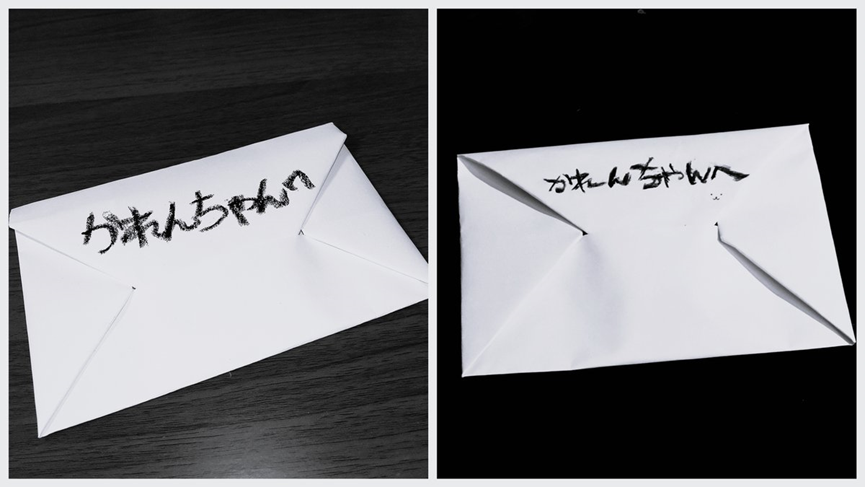 かれんちゃんへ
かれーんちゃんへ